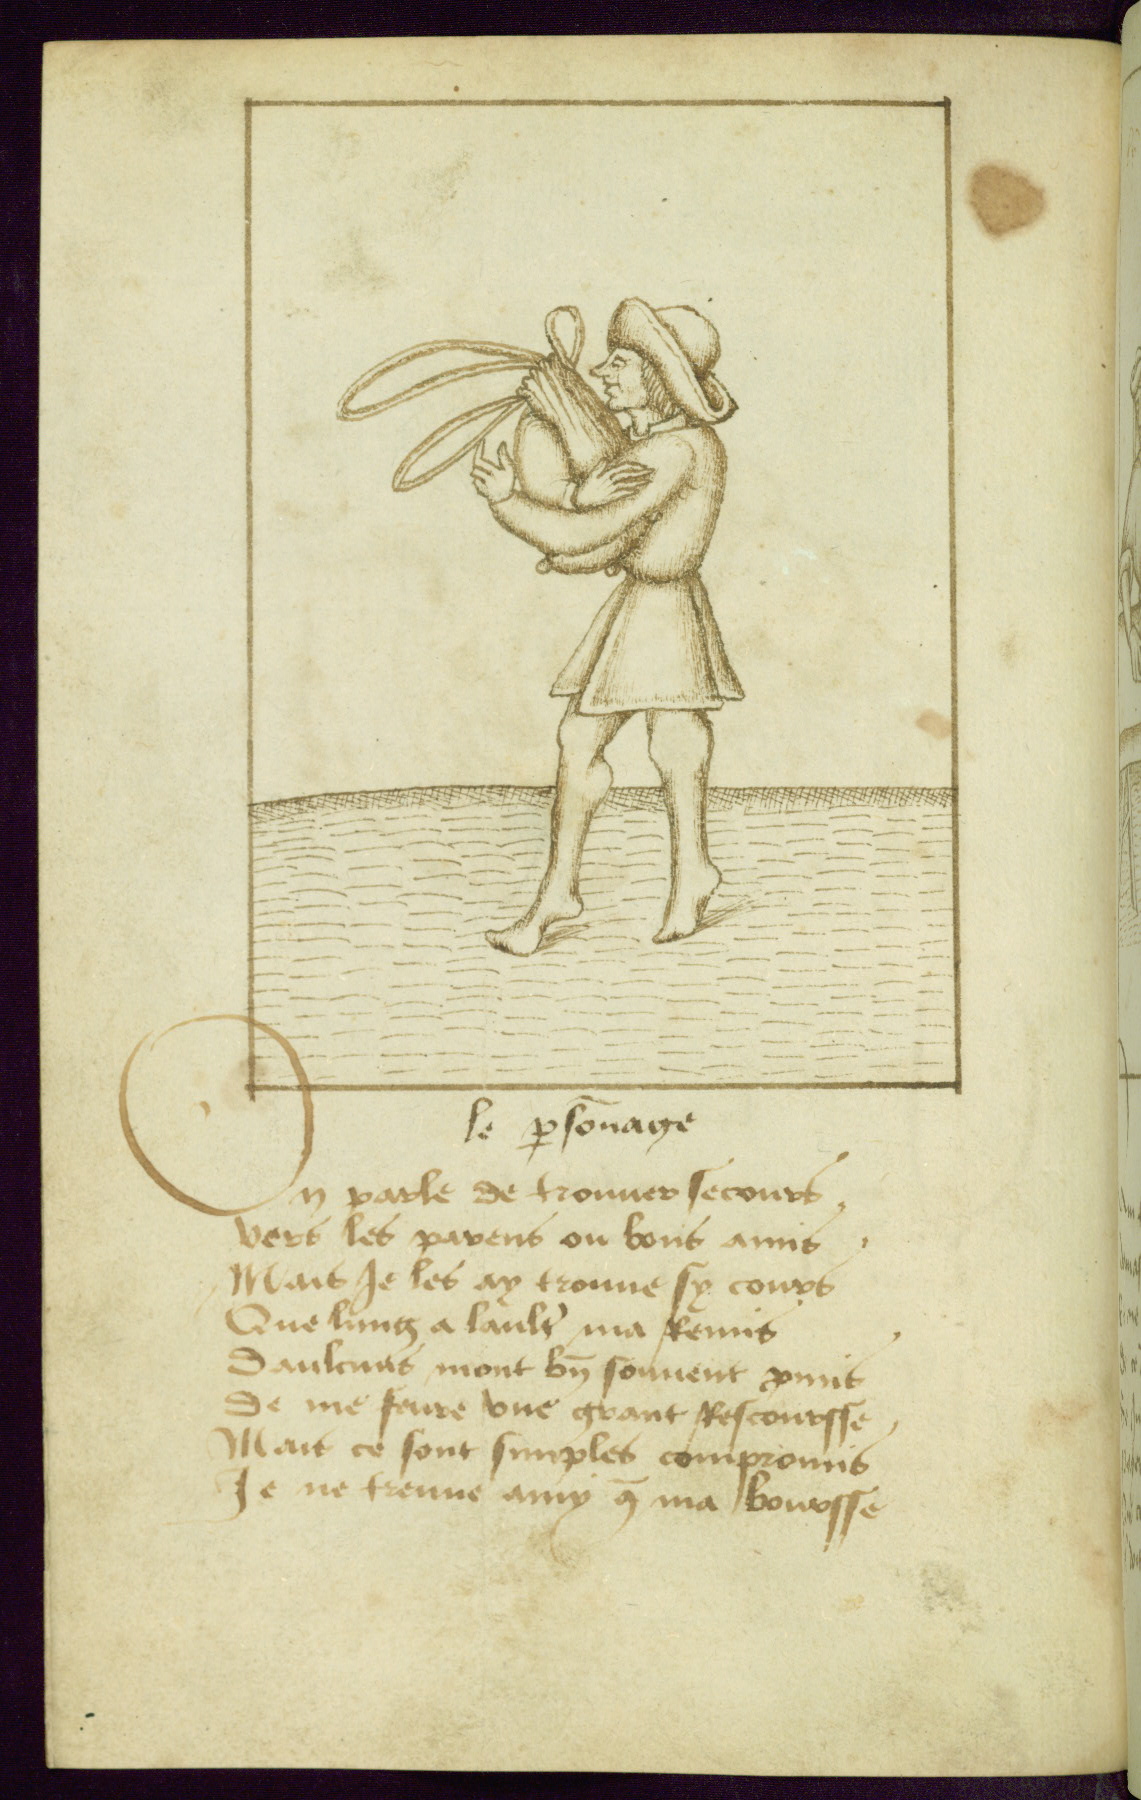 le p̱so̅nage
On parle de trouuer secours
vers les parens ou bons amis
Mais Je les ay trouue sy cours
Que lung a laultʳ ma Remis
Daulcuns mont bn̅ souuent pmis
De me feure vne grant Rescoursse
Mais ce sont simples compromis
Je ne treuue amy q̅ ma boursse